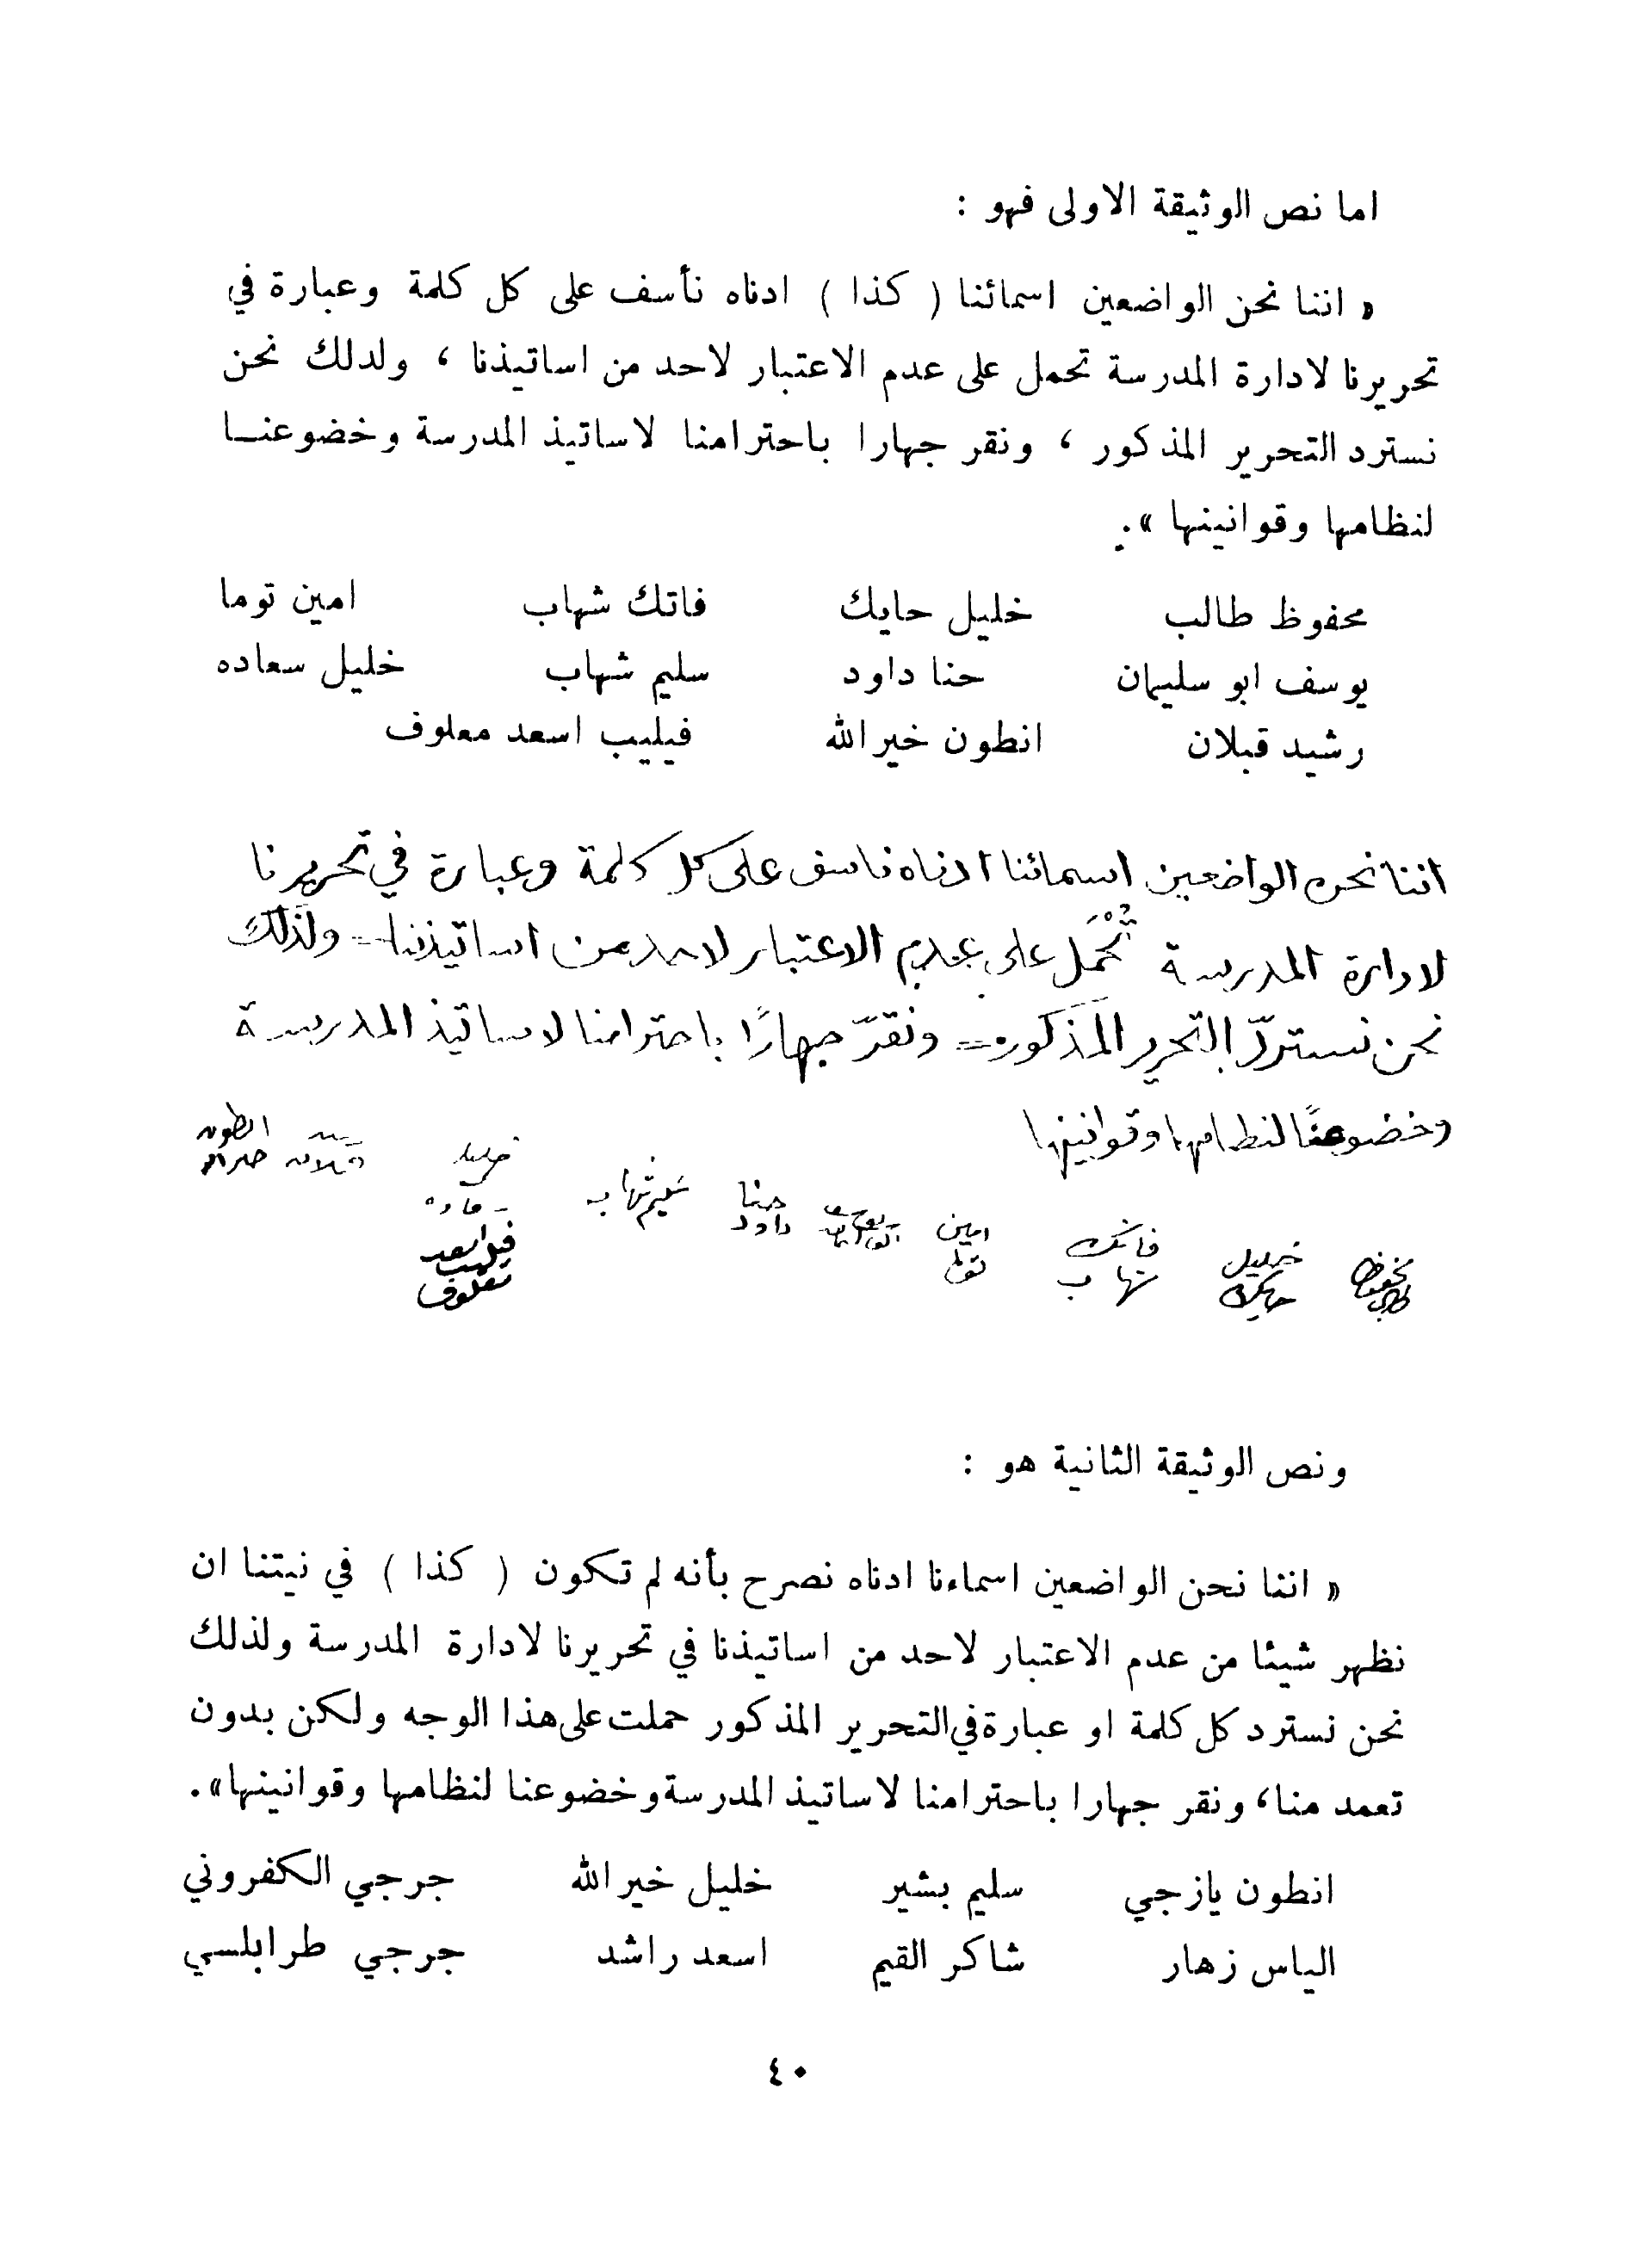 اما نص الوثيقة الاولى فهو :
« اننا نحن الواضعين اسمائنا ( كذا ) ادناه نأسف على كل كلمة وعبارة في
تحريرنا لادارة المدرسة تحمل على عدم الاعتبار لاحد من اساتيذنا ، ولدلك نحن
نسترد التحرير المذكور ، ونقر جهارا باحترامنا لاساتيذ المدرسة وخضوعنا
لنظامها وقوانينها ».
محفوظ طالب خليل حايك فاتك شهاب امين توما
يوسف ابو سليمان حنا داود سليم شهاب خليل سعاده
رشيد قبلان انطون خيرالله فيليب اسعد معلوف
اننا نحن الواضعين اسمائنا ادناه ناسف على كل كلمة وعبارة في تحريرنا
لادارة المدرسة تُحْمَل على عدم الاعتبار لاحد من اساتيذنا = ولذلك
نحن نستردّ التحرير المذكور = ونقرّ جهارًا باحترامنا لاساتيذ المدرسة
وخضوعنا لنظامها وقوانينها
انطون خيرالله
قبلان
خليل سعاده
سليم شهاب
حنا داود
امين توما
فاتك شهاب
خليل حايك
محفوظ طالب
فيليب اسعد معلوف
ونص الوثيقة الثانية هو :
« اننا نحن الواضعين اسماءنا ادناه نصرح بأنه لم تكون ( كذا ) في نيتنا ان
نظهر شيئا من عدم الاعتبار لاحد من اساتيذنا في تحريرنا لادارة المدرسة ولذلك
نحن نسترد كل كلمة او عبارة في التحرير المذكور حملت على هذا الوجه ولكن بدون
تعمد منا، ونقر جهارا باحترامنا لاساتيذ المدرسة وخضوعنا لنظامها وقوانينها».
انطون يازجي سليم بشير خليل خيرالله جرجي الكفروني
الياس زهار شاكر القيم اسعد راشد جرجي طرابلسي
٤٠